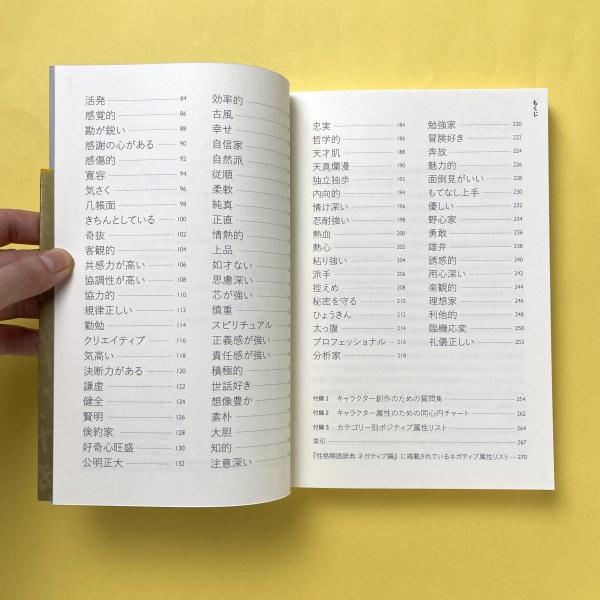 活発 84
感覚的 86
勘が鋭い 88
感謝の心がある 90
感傷的 92
寛容 94
気さく 96
几帳面 98
きちんとしている 100
奇抜 102
客観的 104
共感力が高い 106
協調性が高い 108
協力的 110
規律正しい 112
勤勉 114
クリエイティブ 116
気高い 118
決断力がある 120
謙虚 122
健全 124
賢明 126
倹約家 128
好奇心旺盛 130
公明正大 132
効率的
古風
幸せ
自信家
自然派
従順
柔軟
純真
正直
情熱的
上品
如才ない
思慮深い
芯が強い
慎重
スピリチュアル
正義感が強い
責任感が強い
積極的
世話好き
想像豊か
素朴
大胆
知的
注意深い
もくじ
忠実 184
哲学的 186
天才肌 188
天真爛漫 190
独立独歩 192
内向的 194
情け深い 196
忍耐強い 198
熱血 200
熱心 202
粘り強い 204
派手 206
控えめ 208
秘密を守る 210
ひょうきん 212
太っ腹 214
プロフェッショナル 216
分析家 218
勉強家 220
冒険好き 222
奔放 224
魅力的 226
面倒見がいい 228
もてなし上手 230
優しい 232
野心家 234
勇敢 236
雄弁 238
誘惑的 240
用心深い 242
楽観的 244
理想家 246
利他的 248
臨機応変 250
礼儀正しい 252
付録1 キャラクター創作のための質問集 254
付録2 キャラクター属性のための同心円チャート 262
付録3 カテゴリー別ポジティブ属性リスト 264
索引 267
『性格類語辞典 ネガティブ編』に掲載されているネガティブ属性リスト 270